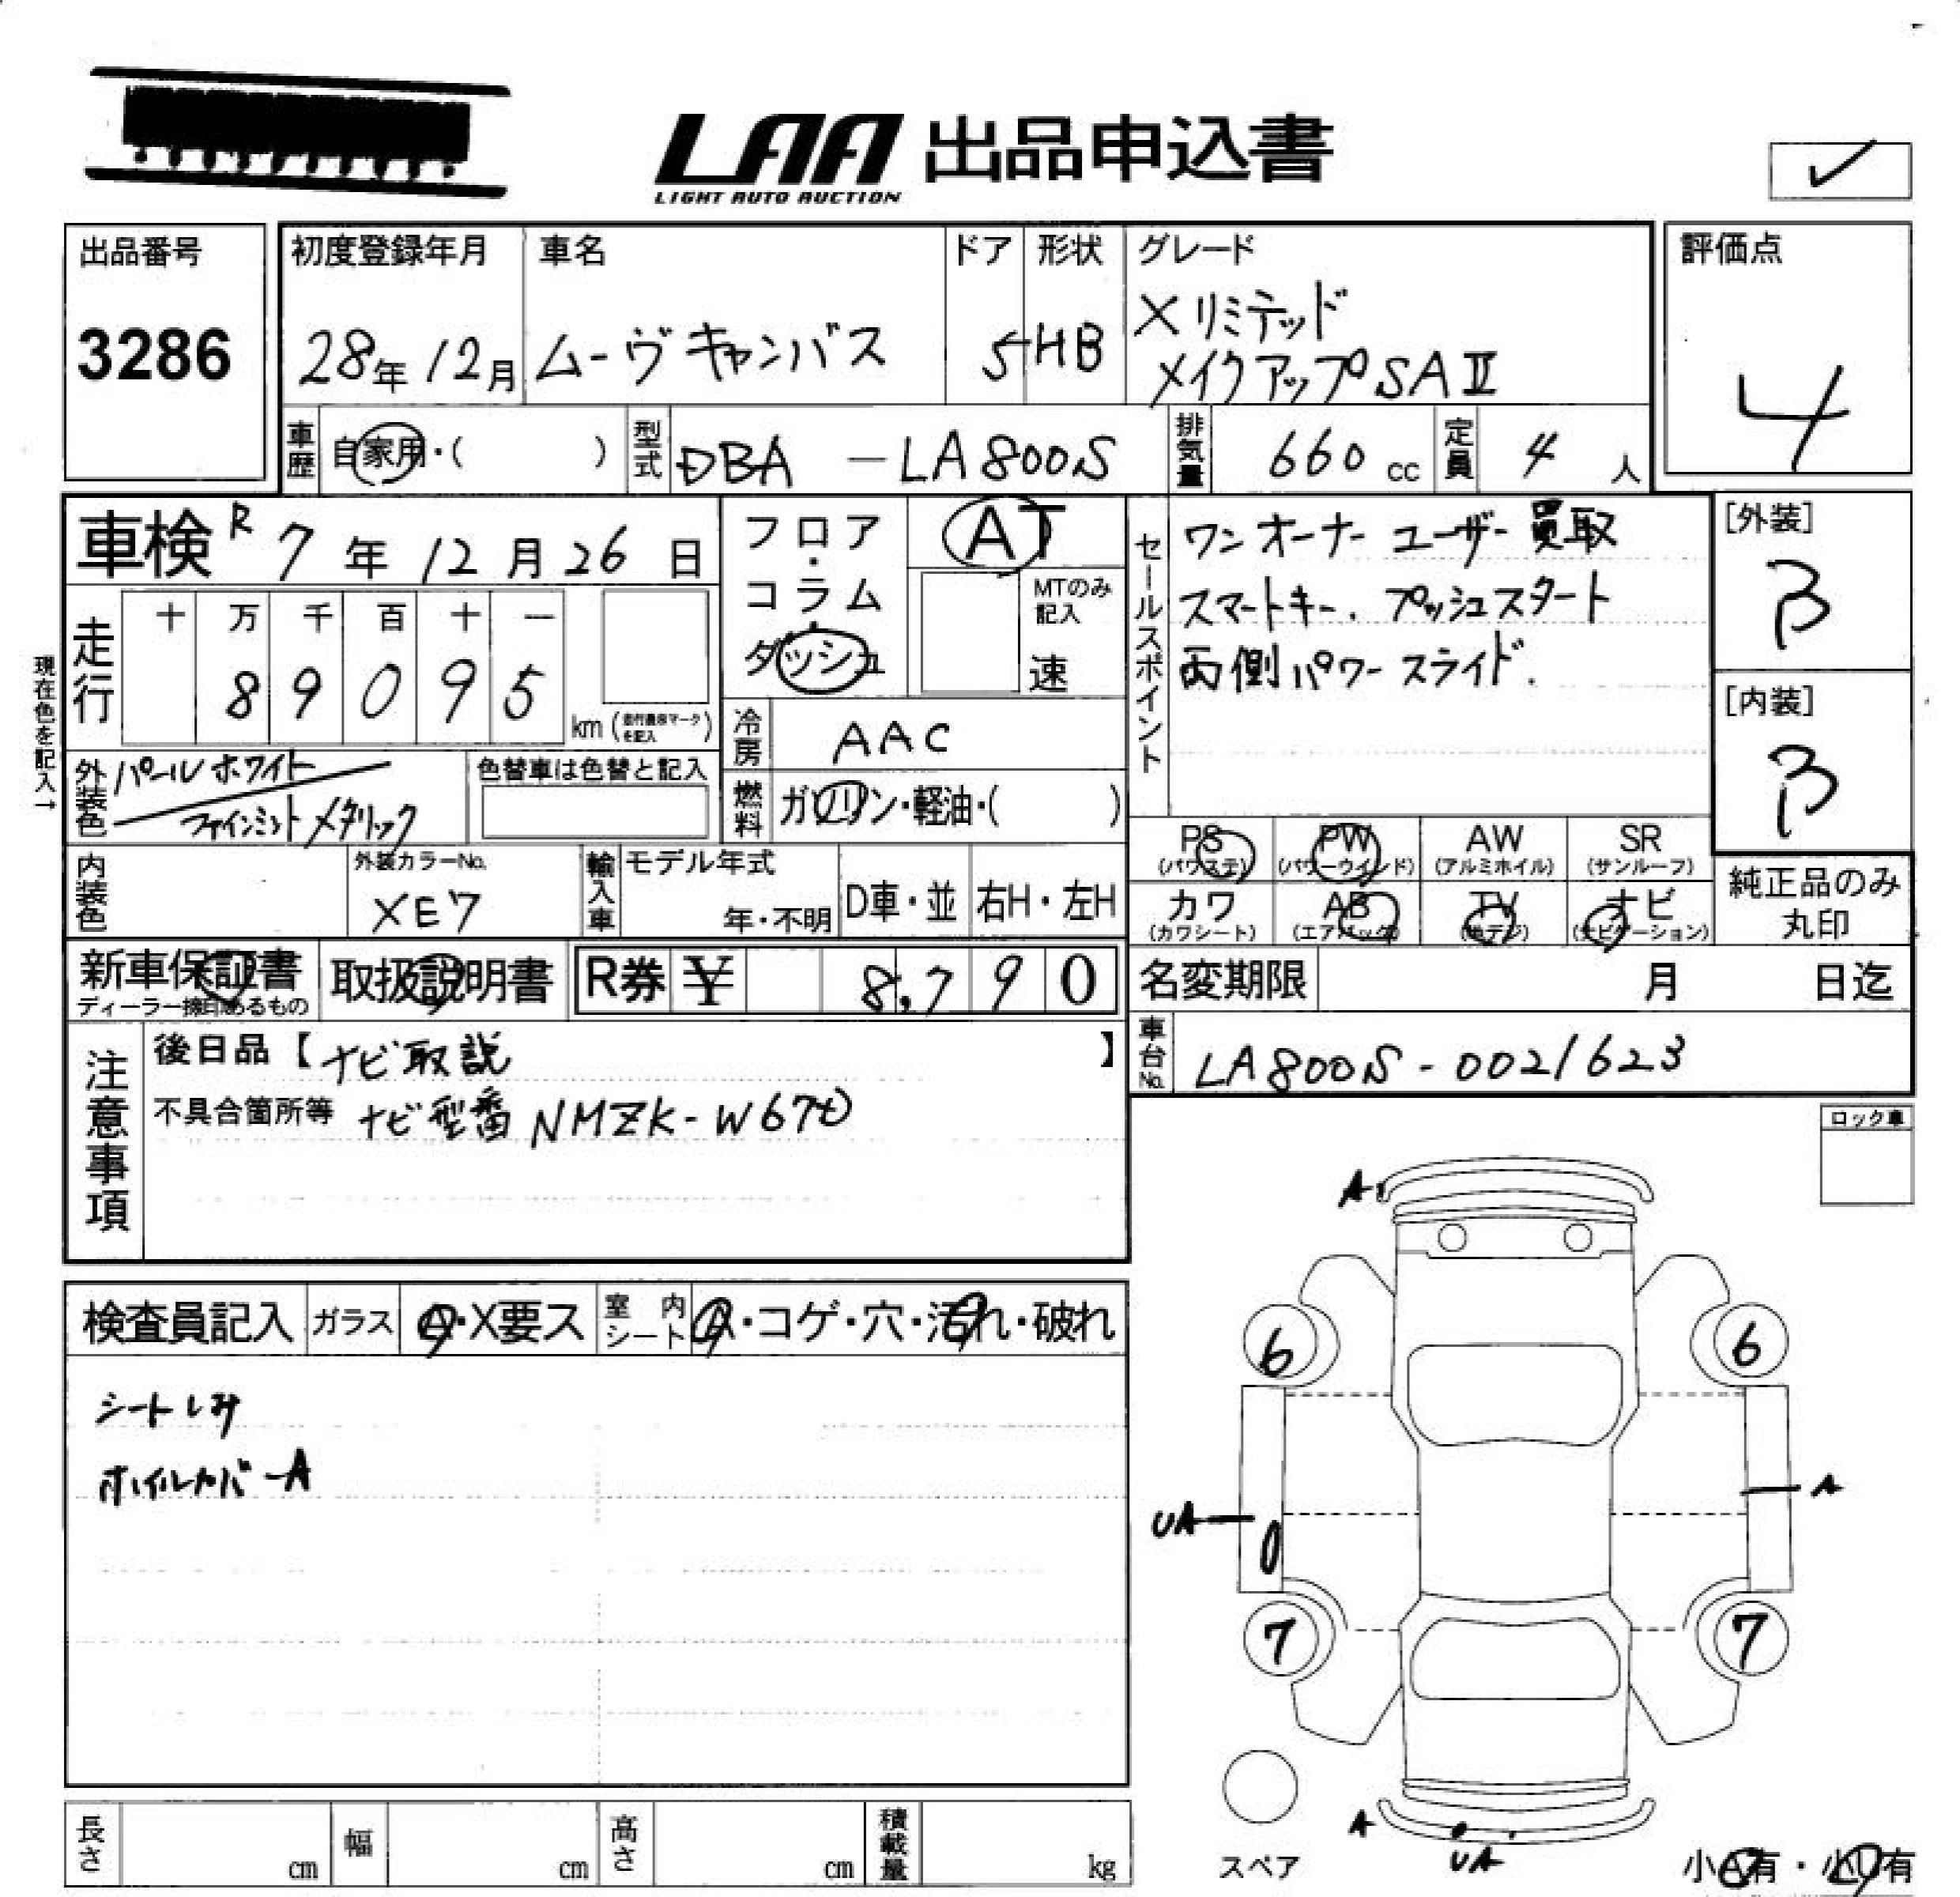 LAA 出品申込書
LIGHT AUTO AUCTION
✓
出品番号
3286
初度登録年月
28年12月
車名
ムーヴキャンバス
ドア
5
形状
HB
グレード
Xリミテッド
メイクアップSAⅡ
評価点
4
車歴
自家用・( )
型式
DBA-LA800S
排気量
660cc
定員
4人
車検 R7年12月26日
フロア・コラム・ダッシュ
AT
MTのみ記入
速
セールスポイント
ワンオーナー ユーザー買取
スマートキー. プッシュスタート
両側パワースライド.
[外装]
B
[内装]
B
現在色を記入→
走行
十 万 千 百 十 一
8 9 0 9 5
km (走行農家マークを記入)
冷房
AAC
外装色
パールホワイト
ファインミントメタリック
色替車は色替と記入
燃料
ガソリン・軽油・( )
PS (パワステ)
PW (パワーウインド)
AW (アルミホイル)
SR (サンルーフ)
カワ (カワシート)
AB (エアバック)
TV (地デジ)
ナビ (ナビゲーション)
純正品のみ丸印
内装色
外装カラーNo.
XE7
輸入車
モデル年式
年・不明
D車・並
右H・左H
新車保証書
ディーラー捺印あるもの
取扱説明書
R券 ¥ 8,790
名変期限 月 日迄
車台No.
LA800S-0021623
注意事項
後日品【ナビ取説 】
不具合箇所等 ナビ型番 NMZK-W67D
ロック車
検査員記入
ガラス
A・X要ス
室内シート
A・コゲ・穴・汚れ・破れ
シートしみ
ホイルカバーA
A
6
6
UA
A
7
7
A
UA
スペア
小A有・小U有
長さ cm
幅 cm
高さ cm
積載量 kg